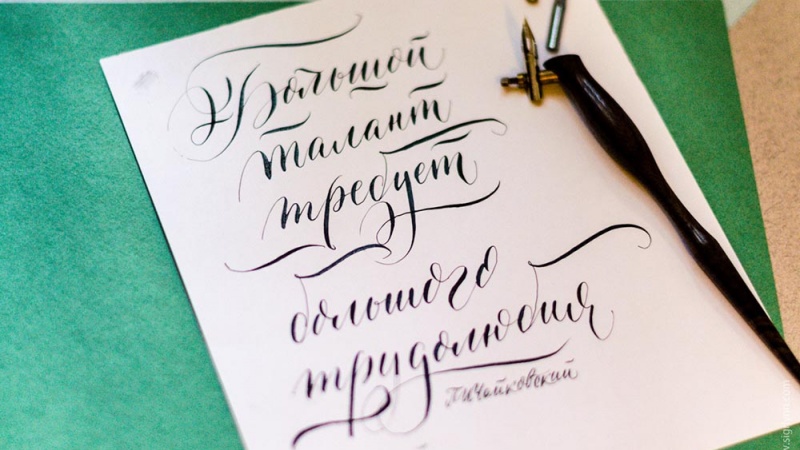 Большой
талант
требует
большого
трудолюбия
П.И.Чайковский